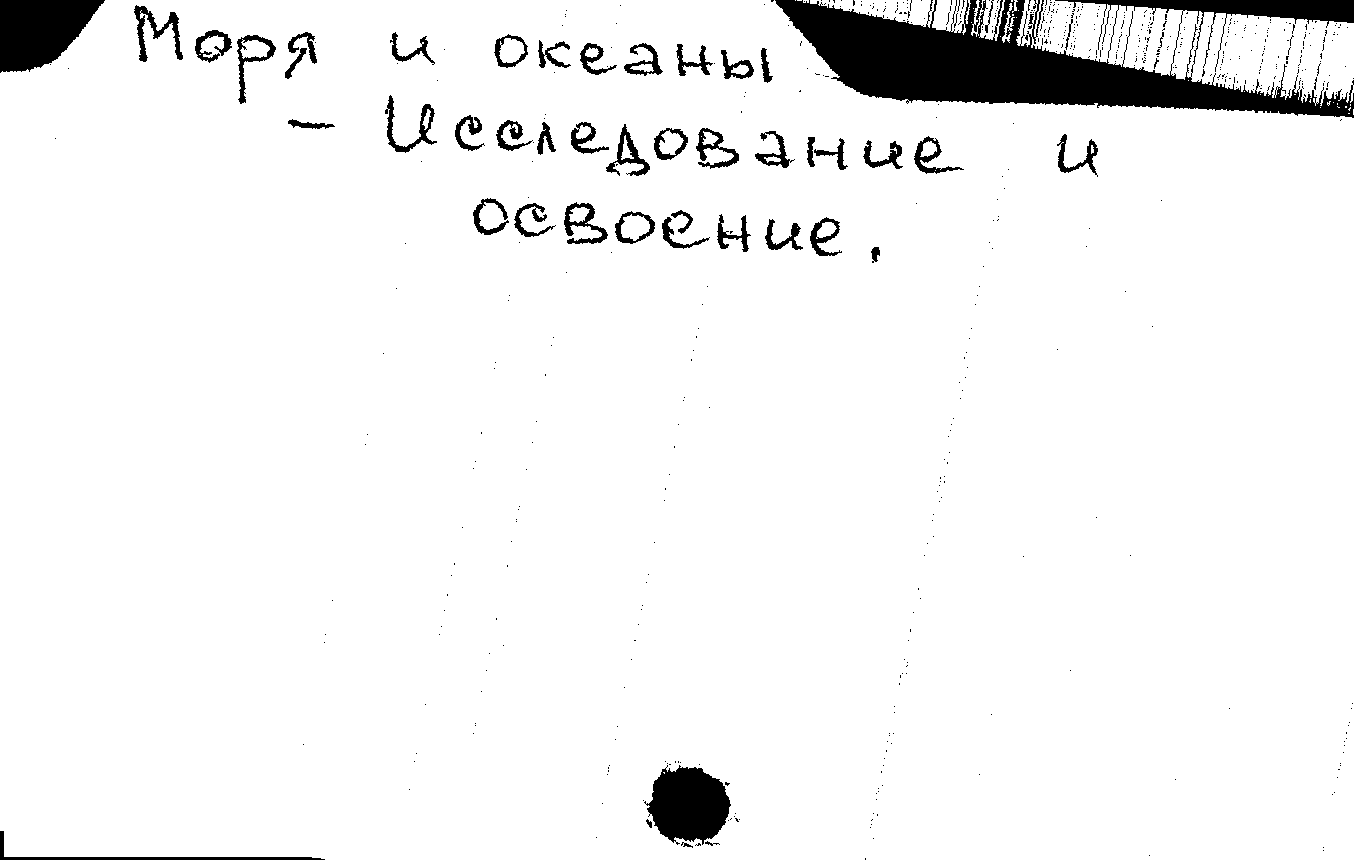 Моря и океаны
- Исследование и
освоение.